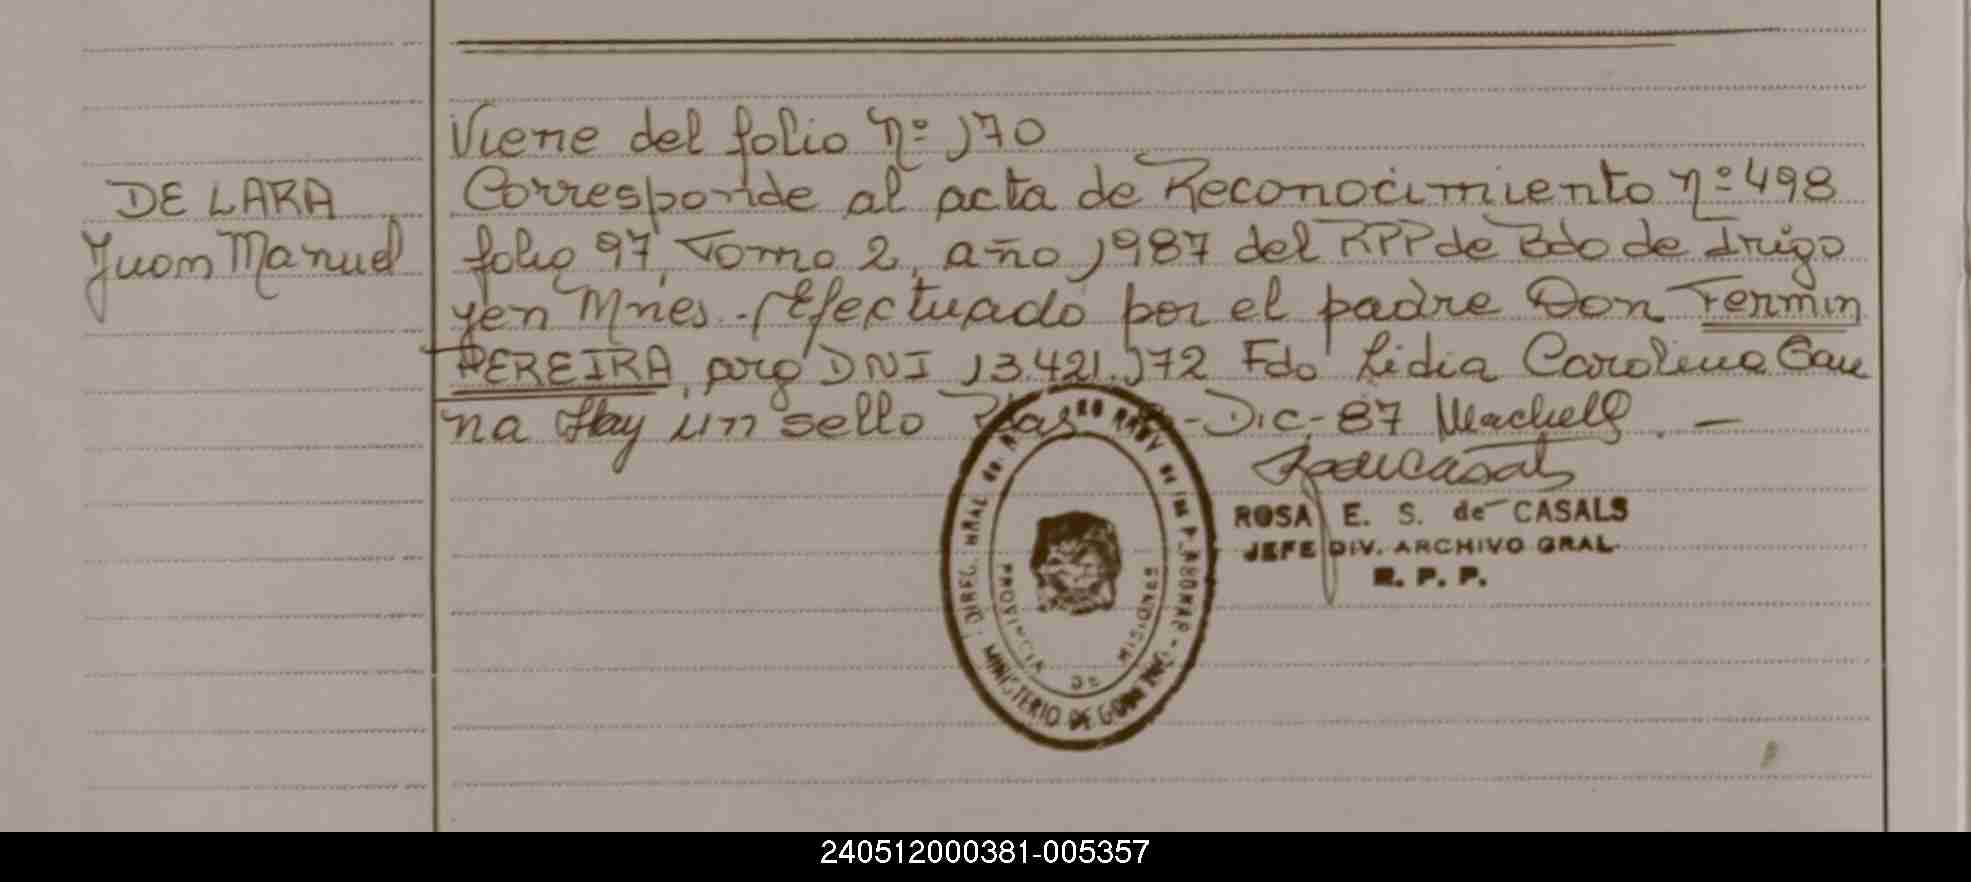 Viene del folio nº 170
DE LARA
Juan Manuel
Corresponde al acta de Reconocimiento nº 498
folio 97, Tomo 2, año 1987 del RPP de Bdo de Irigo
yen Mnes. Efectuado por el padre Don Fermin
PEREIRA, arg DNI 13.421.172 Fdo Lidia Carolina Gau
na Hay un sello Pdas -Dic-87
ROSA E. S. de CASALS
JEFE DIV. ARCHIVO GRAL
R. P. P.
PROVINCIA DE MISIONES
MINISTERIO DE
240512000381-005357